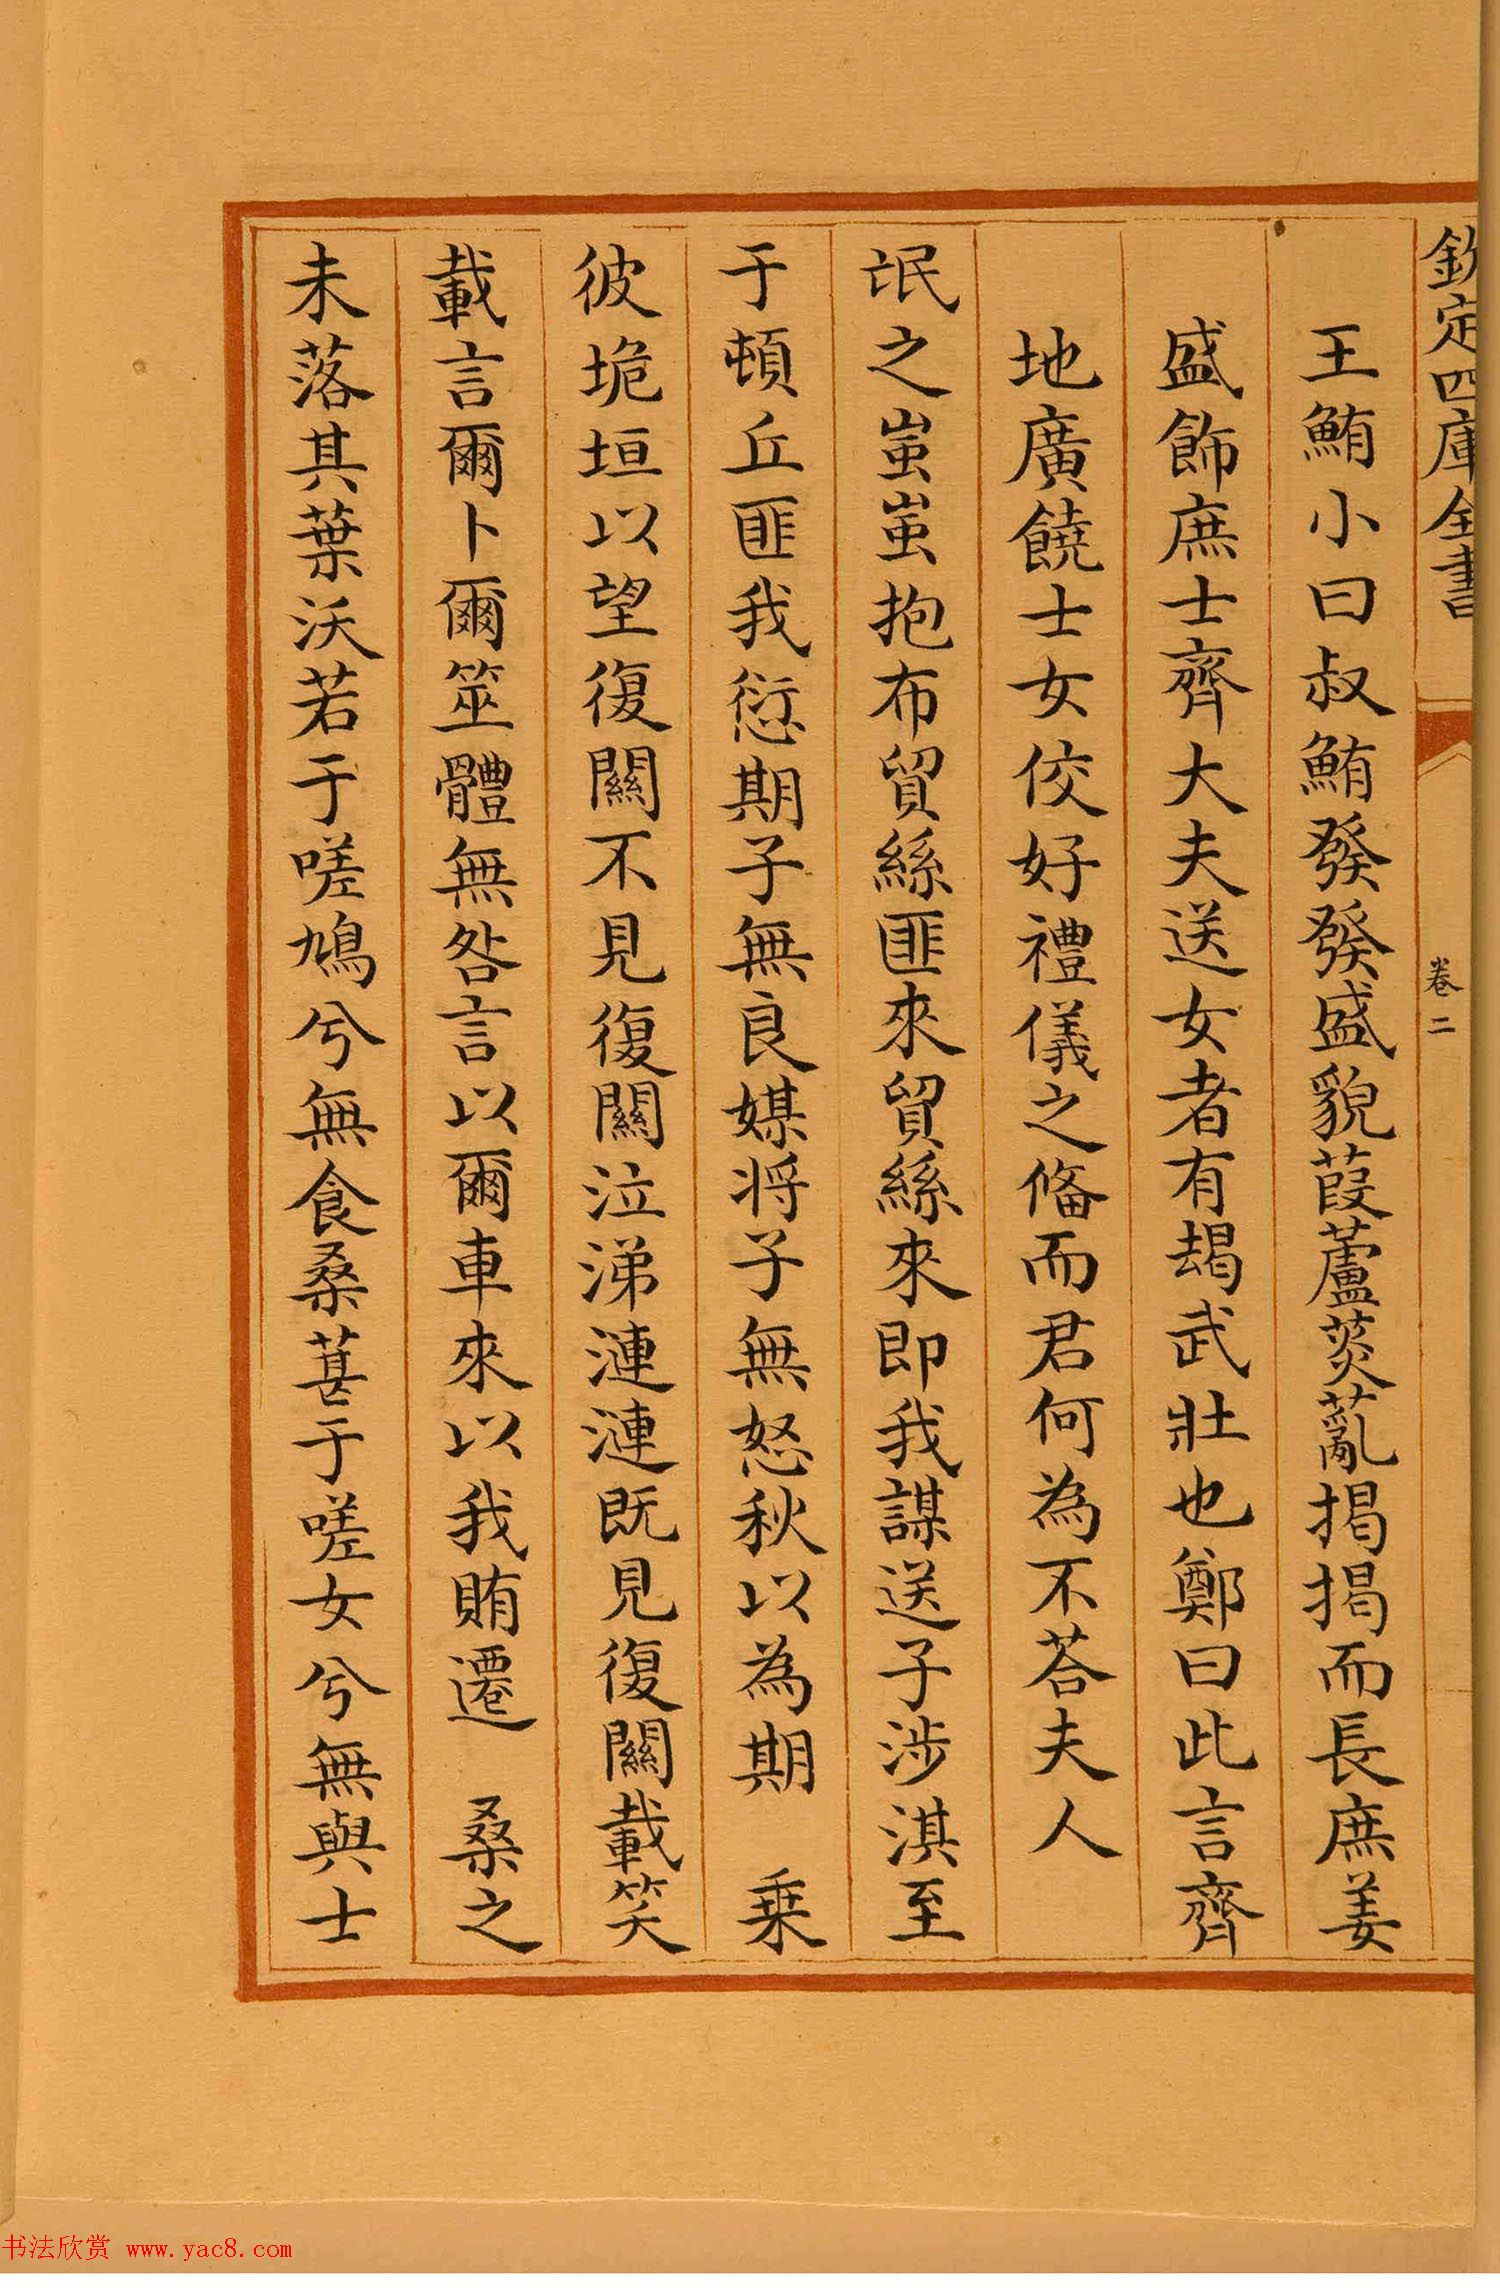 欽定四庫全書
卷二
王鮪小曰叔鮪發發盛貌葭蘆菼薍揭揭而長庶姜
盛飾庶士齊大夫送女者有朅武壯也鄭曰此言齊
地廣饒士女佼好禮儀之俻而君何為不荅夫人
氓之蚩蚩抱布貿絲匪來貿絲來即我謀送子涉淇至
于頓丘匪我愆期子無良媒将子無怒秋以為期　乗
彼垝垣以望復關不見復關泣涕漣漣既見復關載笑
載言爾卜爾筮體無咎言以爾車來以我賄遷　桑之
未落其葉沃若于嗟鳩兮無食桑葚于嗟女兮無與士
书法欣赏 www.yac8.com